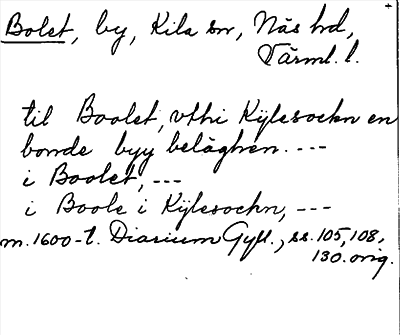 Bolet, by, Kila sn, Näs hd,
Värml. l.
til Boolet, vthi Kÿlesockn en
bonde byy belåghen. ---
i Boolet, ---
i Boole i Kÿlesockn, ---
m. 1600-t. Diarium Gyll., ss. 105, 108,
130. orig.